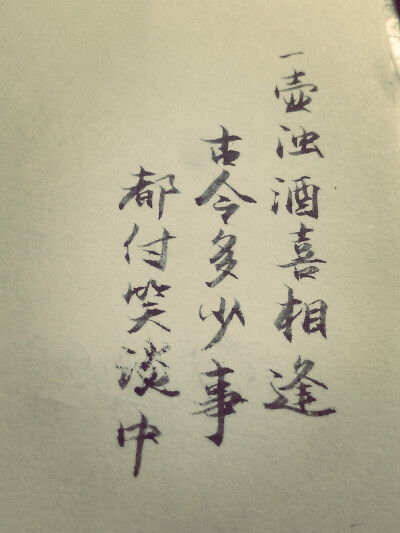 一壶浊酒喜相逢
古今多少事
都付笑淡中